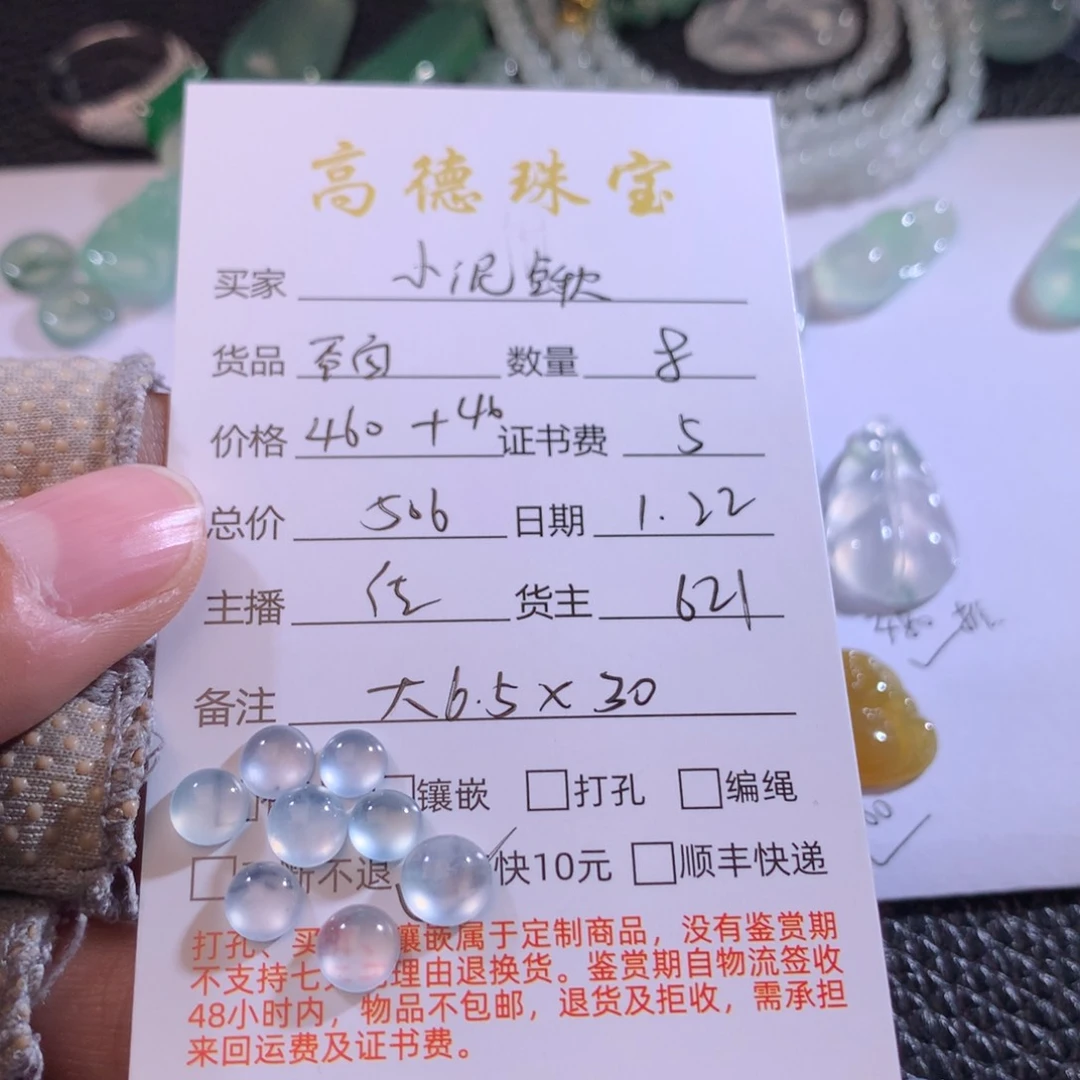 高德珠宝
买家 小泥
货品 数量 8
价格 460 + 46 证书费 5
总价 506 日期 1.22
主播 佳 货主 621
备注 大6.5×30
镶嵌 打孔 编绳
不退 快10元 顺丰快递
打孔、买 镶嵌属于定制商品，没有鉴赏期
不支持七 理由退换货。鉴赏期自物流签收
48小时内，物品不包邮，退货及拒收，需承担
来回运费及证书费。
480